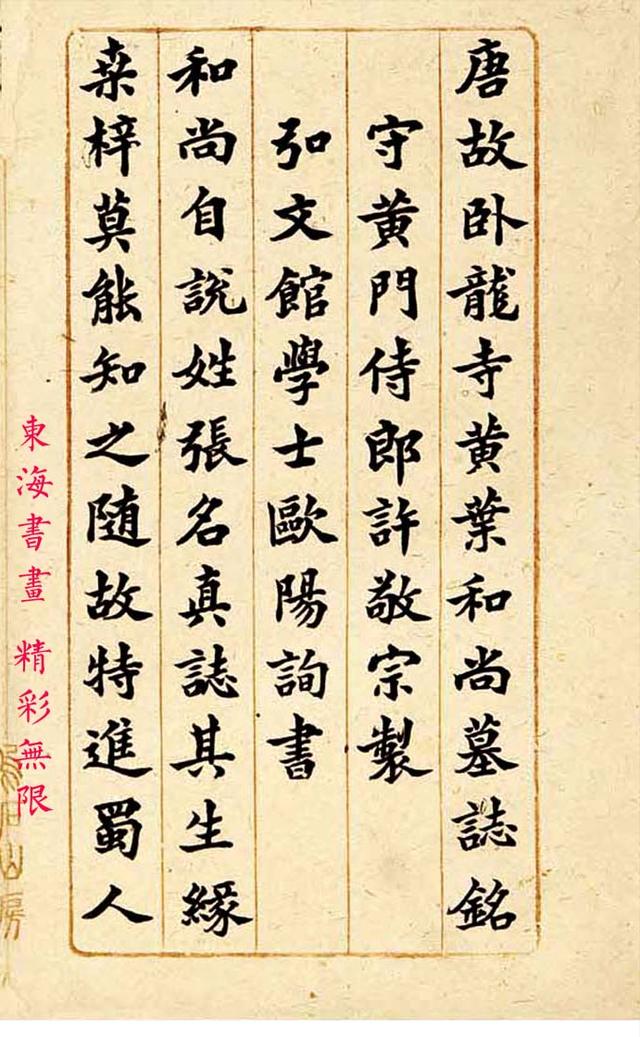 唐故卧龍寺黄葉和尚墓誌銘
守黄門侍郎許敬宗製
弘文館學士歐陽詢書
和尚自說姓張名真誌其生緣
桒梓莫能知之随故特進蜀人
東海書畫 精彩無限
山房